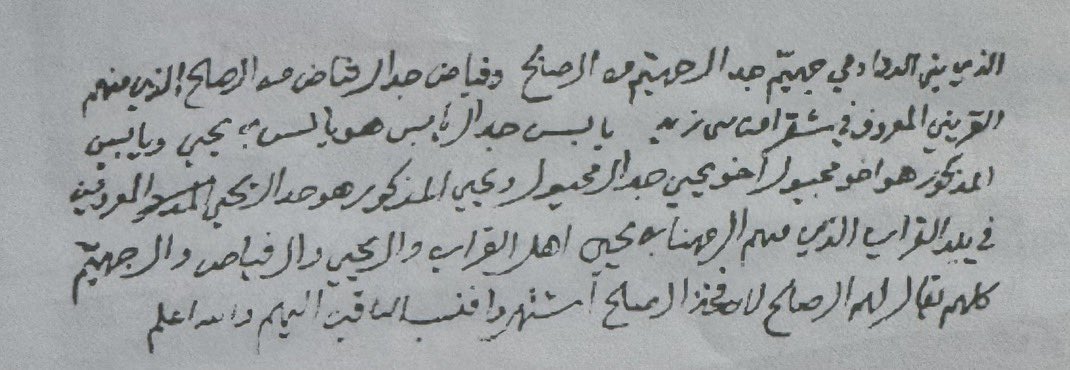 الذي بني جهيّم جد ال جهيّم من ال صالح وفياض جد ال فياض من ال صالح الذي منهم
القريني المعروف في شقرا من بني زيد يابس جد ال يابس هو يابس بن يحيى ويابس
المذكور هو اخو مجبول اخو يحيى جد ال مجبول ويحيى المذكور هو جد ال يحيى المعروفين
في بلد القراين الذي منهم ال مهنا بن يحيى اهل القراين وال يحيى وال فياض وال جهيّم
كلهم يقال لهم ال صالح لان فخذ ال صالح اشتهروا فنسب الباقين اليهم والله اعلم